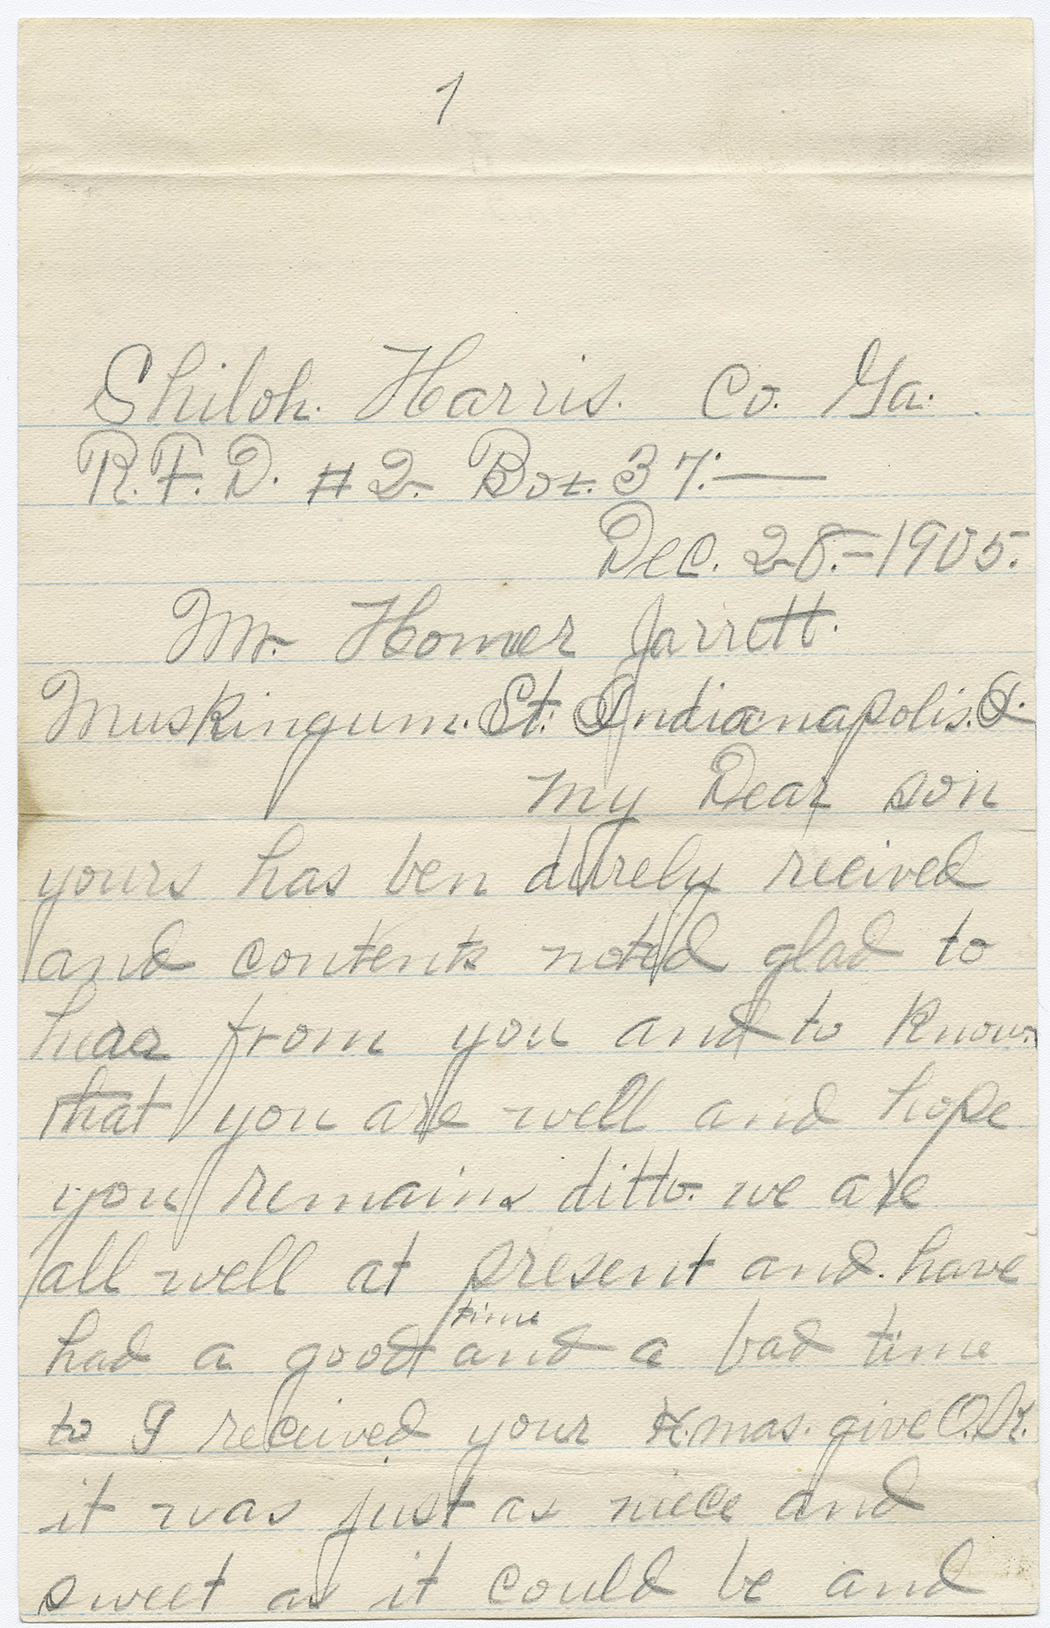 1
Shiloh. Harris. Co. Ga.
R.F.D. #2. Box. 37:—
Dec. 28.=1905.
Mr. Homer Jarrett.
Muskingum. St. Indianapolis. I.
My Dear son
yours has ben durely recived
and contents noted glad to
hear from you and to know.
that you are well and hope
you remains ditto. we are
all well at present and. have
had a good time and a bad time
to I received your X.mas. give O.K.
it was just as niece and
sweet as it could be and